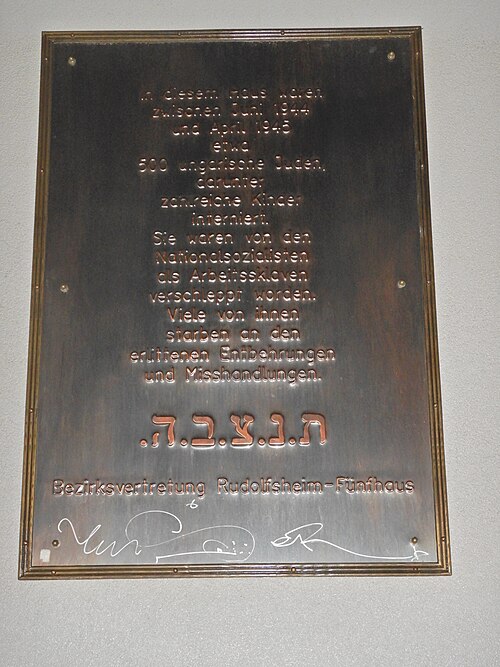 In diesem Haus waren
zwischen Juni 1944
und April 1945
etwa
500 ungarische Juden,
darunter
zahlreiche Kinder
interniert.
Sie waren von den
Nationalsozialisten
als Arbeitssklaven
verschleppt worden.
Viele von ihnen
starben an den
erlittenen Entbehrungen
und Misshandlungen.
ת.נ.צ.ב.ה.
Bezirksvertretung Rudolfsheim-Fünfhaus